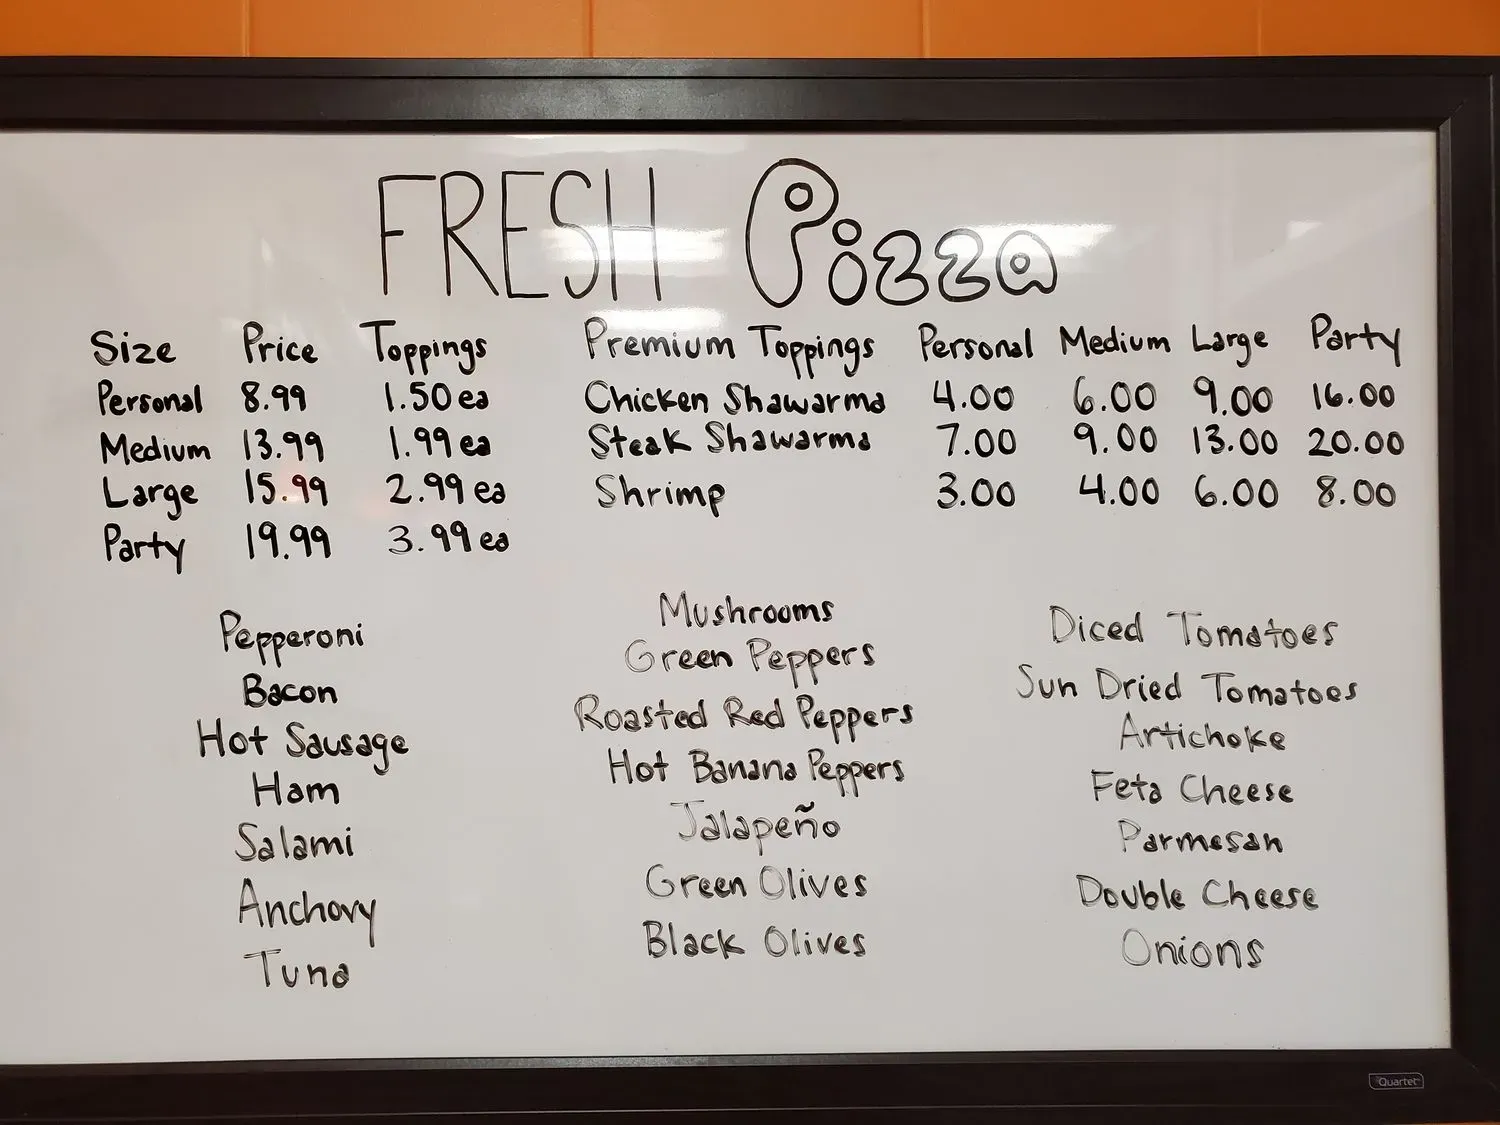 FRESH Pizza
Size Price Toppings
Personal 8.99 1.50 ea
Medium 13.99 1.99 ea
Large 15.99 2.99 ea
Party 19.99 3.99 ea
Premium Toppings Personal Medium Large Party
Chicken Shawarma 4.00 6.00 9.00 16.00
Steak Shawarma 7.00 9.00 13.00 20.00
Shrimp 3.00 4.00 6.00 8.00
Pepperoni
Bacon
Hot Sausage
Ham
Salami
Anchovy
Tuna
Mushrooms
Green Peppers
Roasted Red Peppers
Hot Banana Peppers
Jalapeño
Green Olives
Black Olives
Diced Tomatoes
Sun Dried Tomatoes
Artichoke
Feta Cheese
Parmesan
Double Cheese
Onions
Quartet